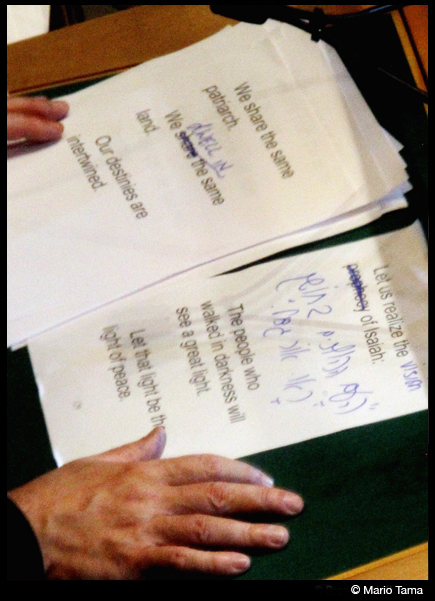 We share the same
patriarch.
DWELL IN
We share the same
land.
Our destinies are
intertwined
Let us realize the vision
prophecy of Isaiah:
The people who
walked in darkness will
see a great light.
Let that light be th
light of peace.
© Mario Tama